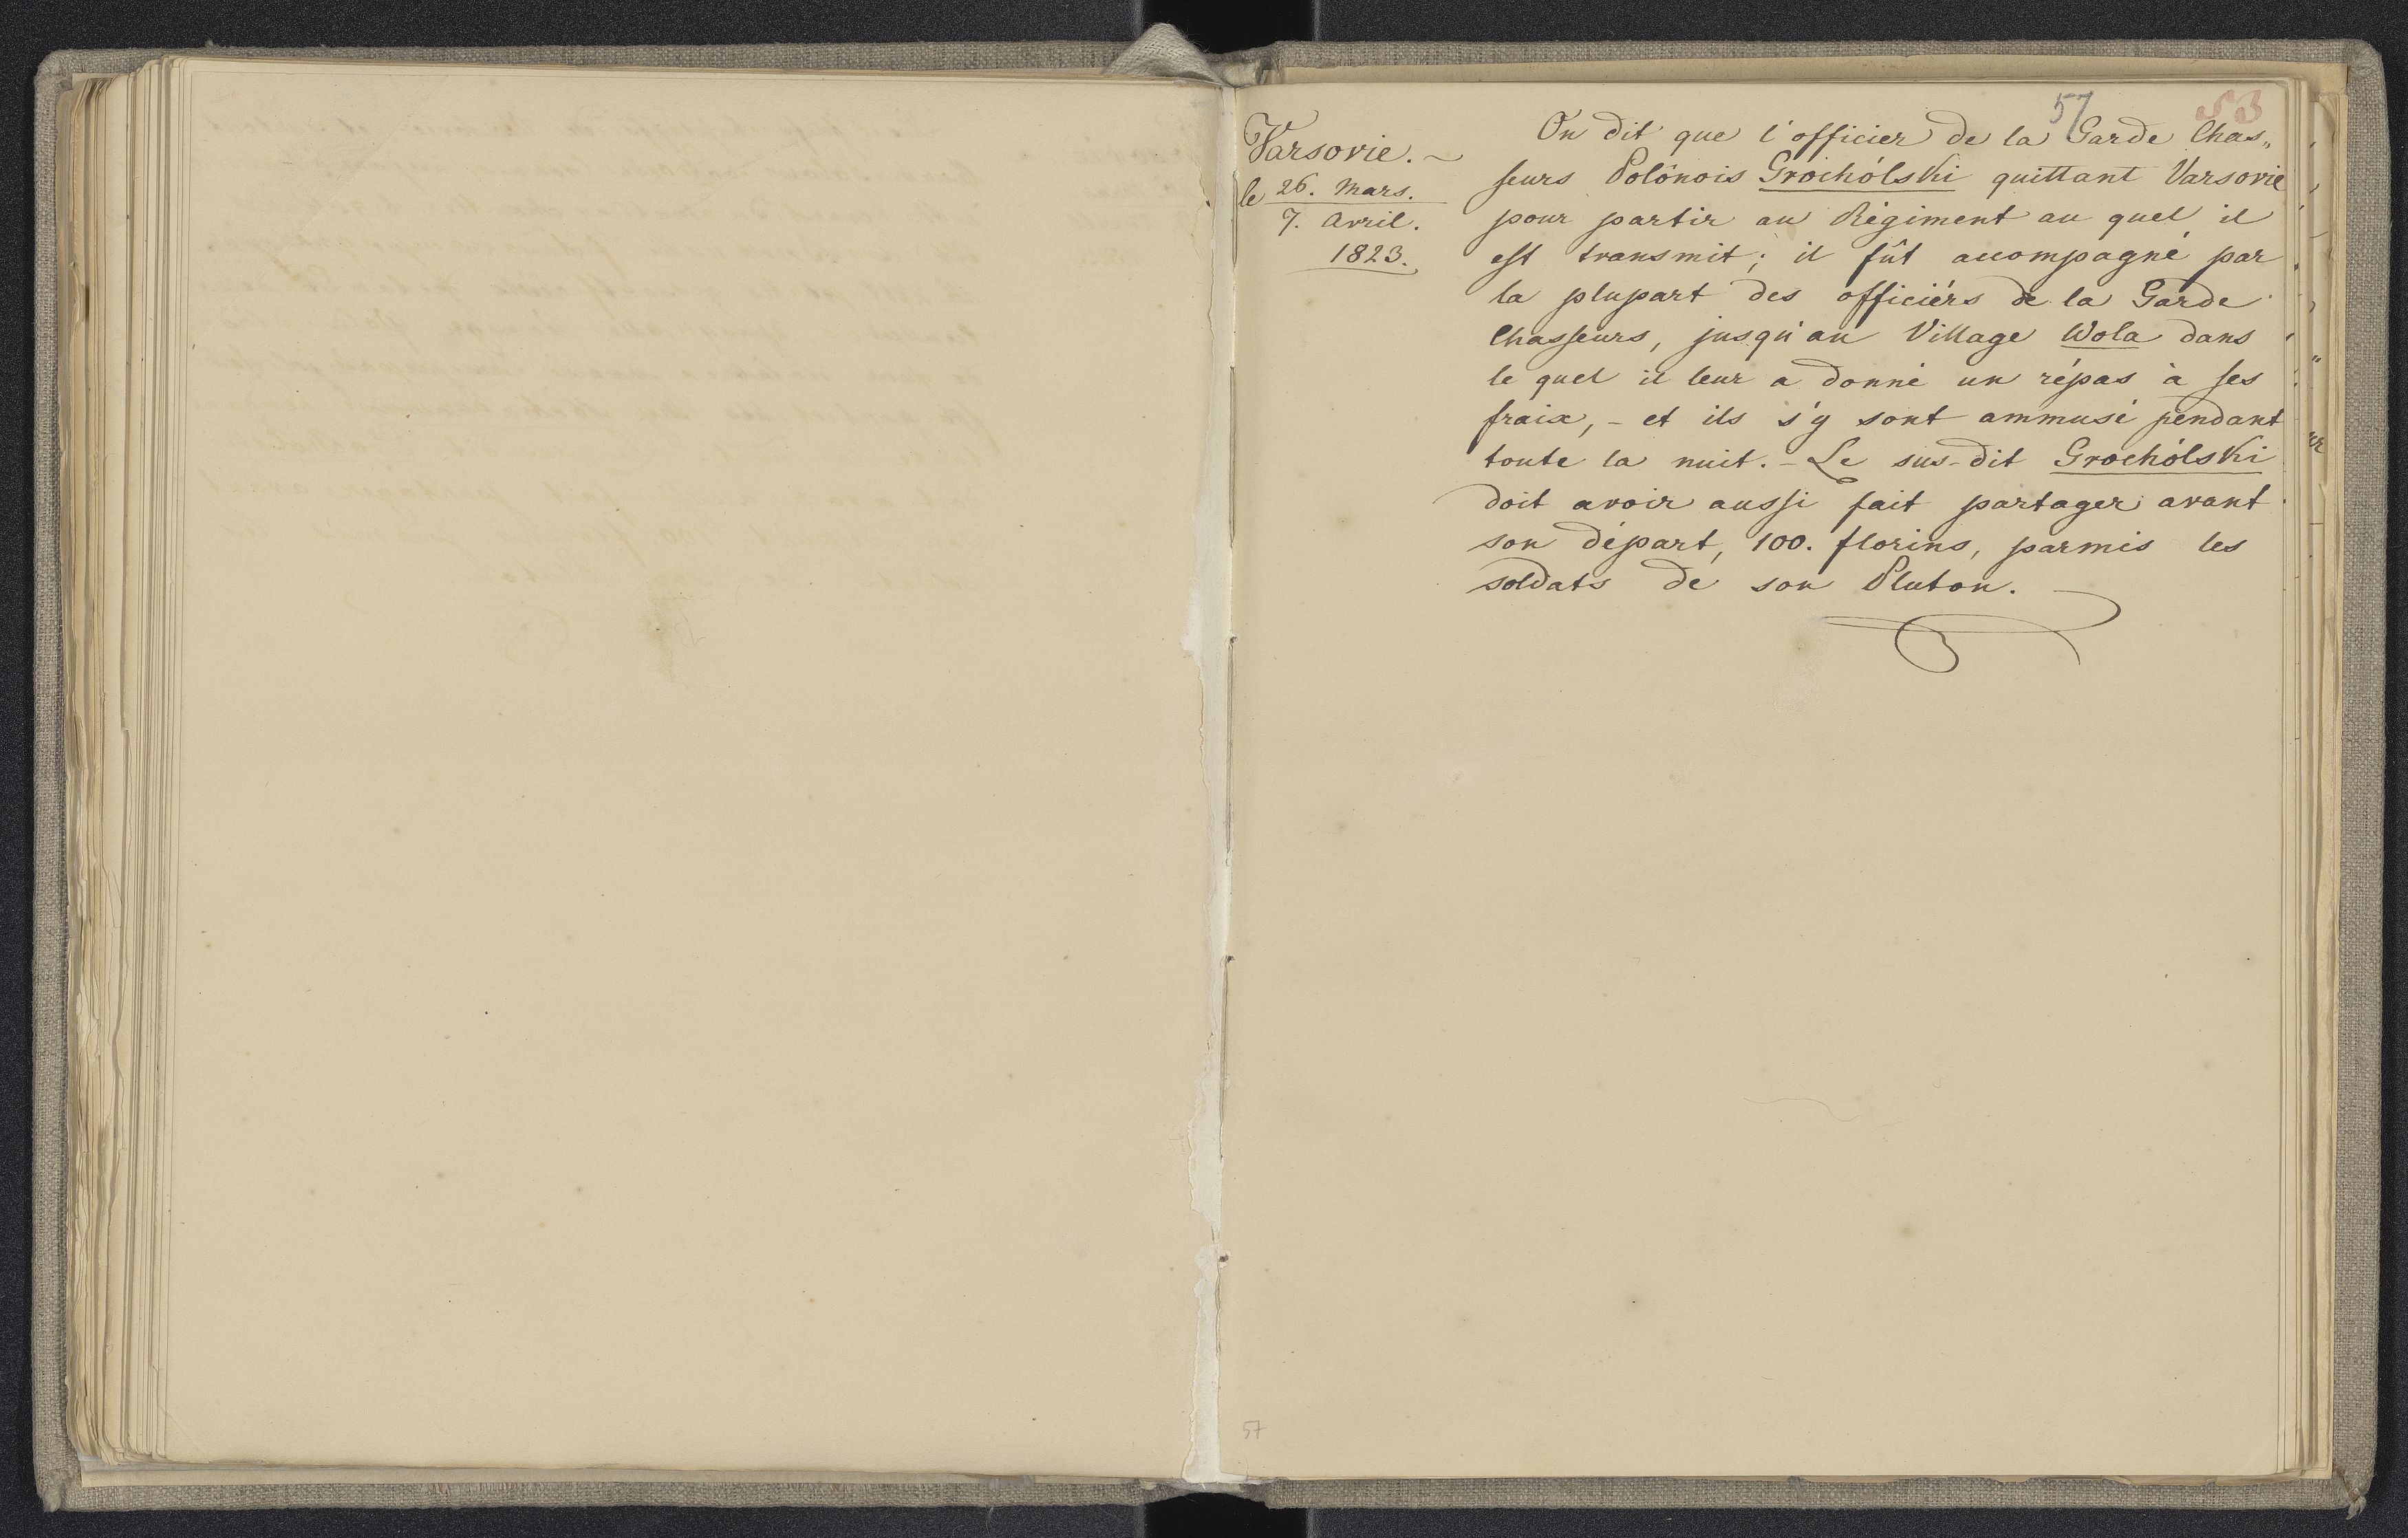 57 53
Varsovie. ~
le 26. Mars.
7. Avril.
1823.
On dit que l'officier de la Garde Chas„
seurs Polônois Grochólski quittant Varsovie
pour partir au Régiment au quel il
est transmit; il fût accompagné par
la plupart des officiérs de la Garde
Chasseurs, jusqu'au Village Wola dans
le quel il leur a donné un répas à ses
fraix, – et ils s'y sont ammusé pendant
toute la nuit. – Le sus-dit Grochólski
doit avoir aussi fait partager avant
son départ, 100. florins, parmis les
soldats de son Pluton.
57